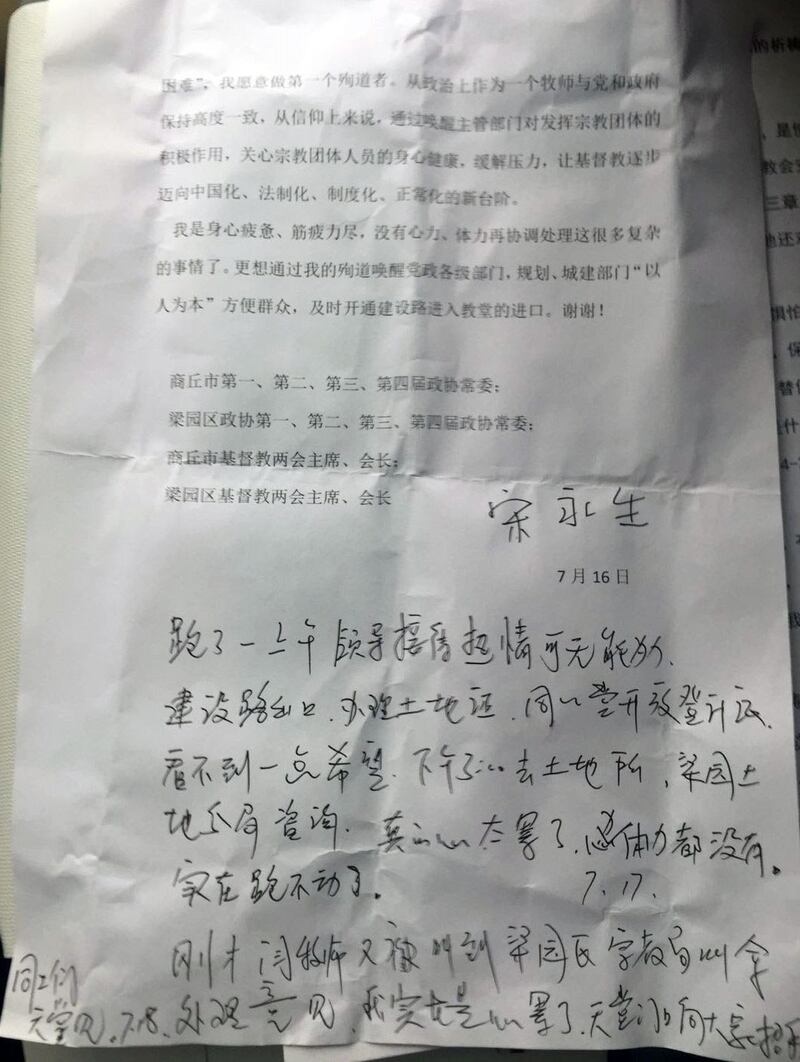 困难”，我愿意做第一个殉道者。从政治上作为一个牧师与党和政府
保持高度一致，从信仰上来说，通过唤醒主管部门对发挥宗教团体的
积极作用，关心宗教团体人员的身心健康，缓解压力，让基督教逐步
迈向中国化、法制化、制度化、正常化的新台阶。
我是身心疲惫、筋疲力尽，没有心力、体力再协调处理这很多复杂
的事情了。更想通过我的殉道唤醒党政各级部门，规划、城建部门“以
人为本”方便群众，及时开通建设路进入教堂的进口。谢谢！
商丘市第一、第二、第三、第四届政协常委；
梁园区政协第一、第二、第三、第四届政协常委；
商丘市基督教两会主席、会长；
梁园区基督教两会主席、会长
宋永生
7月16日
跑了一上午 领导接待热情可无能为力.
建设路出口.办理土地证.同心堂开放登记证.
看不到一点希望.下午3:00去土地所,梁园土
地分局咨询. 真的心太累了.心体力都没有.
实在跑不动了。 7.17.
刚才闫牧师又被叫到梁园民宗教局叫拿
处理意见.我实在是心累了.天堂门口向大家招手
同工们
天堂见.7.18.
的祈祷
教会
三章